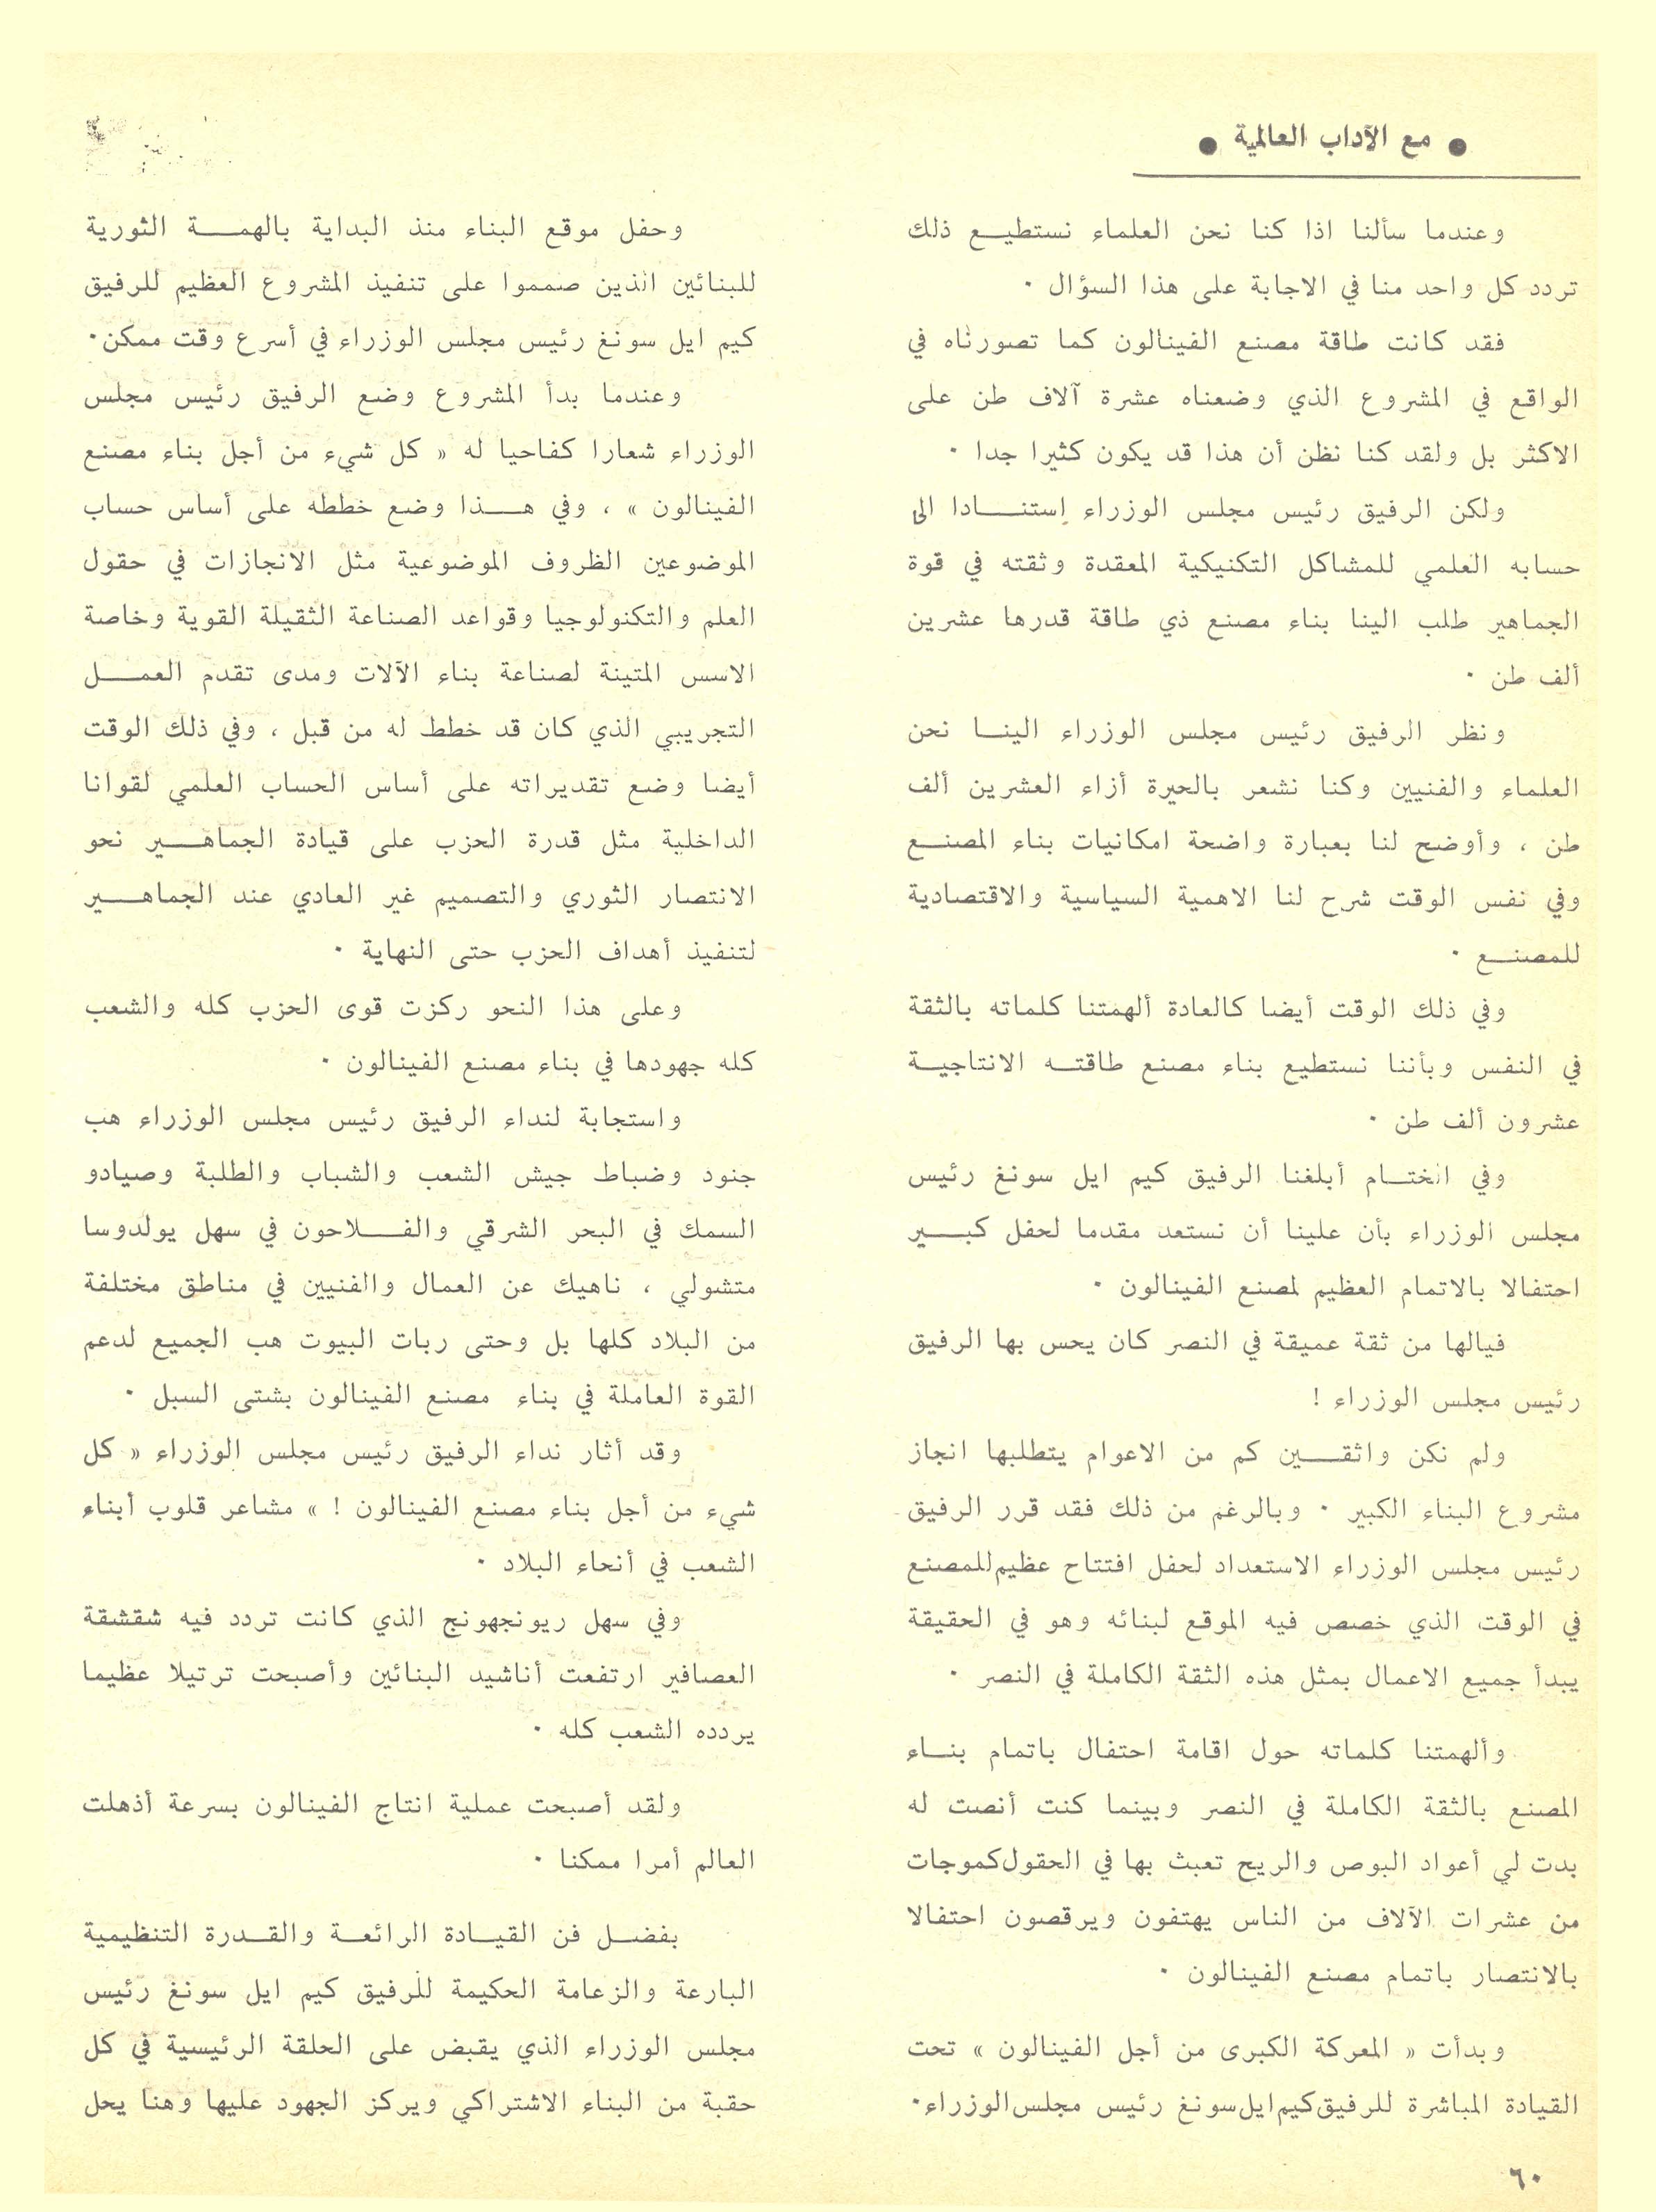 ● مع الآداب العالمية ●
وعندما سألنا اذا كنا نحن العلماء نستطيع ذلك
تردد كل واحد منا في الاجابة على هذا السؤال ٠
فقد كانت طاقة مصنع الفينالون كما تصورناه في
الواقع في المشروع الذي وضعناه عشرة آلاف طن على
الاكثر بل ولقد كنا نظن أن هذا قد يكون كثيرا جدا ٠
ولكن الرفيق رئيس مجلس الوزراء إستنادا الى
حسابه العلمي للمشاكل التكنيكية المعقدة وثقته في قوة
الجماهير طلب الينا بناء مصنع ذي طاقة قدرها عشرين
ألف طن ٠
ونظر الرفيق رئيس مجلس الوزراء الينا نحن
العلماء والفنيين وكنا نشعر بالحيرة أزاء العشرين ألف
طن ، وأوضح لنا بعبارة واضحة امكانيات بناء المصنع
وفي نفس الوقت شرح لنا الاهمية السياسية والاقتصادية
للمصنع ٠
وفي ذلك الوقت أيضا كالعادة ألهمتنا كلماته بالثقة
في النفس وبأننا نستطيع بناء مصنع طاقته الانتاجية
عشرون ألف طن ٠
وفي الختام أبلغنا الرفيق كيم ايل سونغ رئيس
مجلس الوزراء بأن علينا أن نستعد مقدما لحفل كبير
احتفالا بالاتمام العظيم لمصنع الفينالون ٠
فيالها من ثقة عميقة في النصر كان يحس بها الرفيق
رئيس مجلس الوزراء !
ولم نكن واثقين كم من الاعوام يتطلبها انجاز
مشروع البناء الكبير ٠ وبالرغم من ذلك فقد قرر الرفيق
رئيس مجلس الوزراء الاستعداد لحفل افتتاح عظيم للمصنع
في الوقت الذي خصص فيه الموقع لبنائه وهو في الحقيقة
يبدأ جميع الاعمال بمثل هذه الثقة الكاملة في النصر ٠
وألهمتنا كلماته حول اقامة احتفال باتمام بناء
المصنع بالثقة الكاملة في النصر وبينما كنت أنصت له
بدت لي أعواد البوص والريح تعبث بها في الحقول كموجات
من عشرات الآلاف من الناس يهتفون ويرقصون احتفالا
بالانتصار باتمام مصنع الفينالون ٠
وبدأت « المعركة الكبرى من أجل الفينالون » تحت
القيادة المباشرة للرفيق كيم ايل سونغ رئيس مجلس الوزراء٠
وحفل موقع البناء منذ البداية بالهمة الثورية
للبنائين الذين صمموا على تنفيذ المشروع العظيم للرفيق
كيم ايل سونغ رئيس مجلس الوزراء في أسرع وقت ممكن٠
وعندما بدأ المشروع وضع الرفيق رئيس مجلس
الوزراء شعارا كفاحيا له « كل شيء من أجل بناء مصنع
الفينالون » ، وفي هذا وضع خططه على أساس حساب
الموضوعين الظروف الموضوعية مثل الانجازات في حقول
العلم والتكنولوجيا وقواعد الصناعة الثقيلة القوية وخاصة
الاسس المتينة لصناعة بناء الآلات ومدى تقدم العمل
التجريبي الذي كان قد خطط له من قبل ، وفي ذلك الوقت
أيضا وضع تقديراته على أساس الحساب العلمي لقوانا
الداخلية مثل قدرة الحزب على قيادة الجماهير نحو
الانتصار الثوري والتصميم غير العادي عند الجماهير
لتنفيذ أهداف الحزب حتى النهاية ٠
وعلى هذا النحو ركزت قوى الحزب كله والشعب
كله جهودها في بناء مصنع الفينالون ٠
واستجابة لنداء الرفيق رئيس مجلس الوزراء هب
جنود وضباط جيش الشعب والشباب والطلبة وصيادو
السمك في البحر الشرقي والفلاحون في سهل يولدوسا
متشولي ، ناهيك عن العمال والفنيين في مناطق مختلفة
من البلاد كلها بل وحتى ربات البيوت هب الجميع لدعم
القوة العاملة في بناء مصنع الفينالون بشتى السبل ٠
وقد أثار نداء الرفيق رئيس مجلس الوزراء « كل
شيء من أجل بناء مصنع الفينالون ! » مشاعر قلوب أبناء
الشعب في أنحاء البلاد ٠
وفي سهل ريونجهونج الذي كانت تردد فيه شقشقة
العصافير ارتفعت أناشيد البنائين وأصبحت ترتيلا عظيما
يردده الشعب كله ٠
ولقد أصبحت عملية انتاج الفينالون بسرعة أذهلت
العالم أمرا ممكنا ٠
بفضل فن القيادة الرائعة والقدرة التنظيمية
البارعة والزعامة الحكيمة للرفيق كيم ايل سونغ رئيس
مجلس الوزراء الذي يقبض على الحلقة الرئيسية في كل
حقبة من البناء الاشتراكي ويركز الجهود عليها وهنا يحل
٦٠